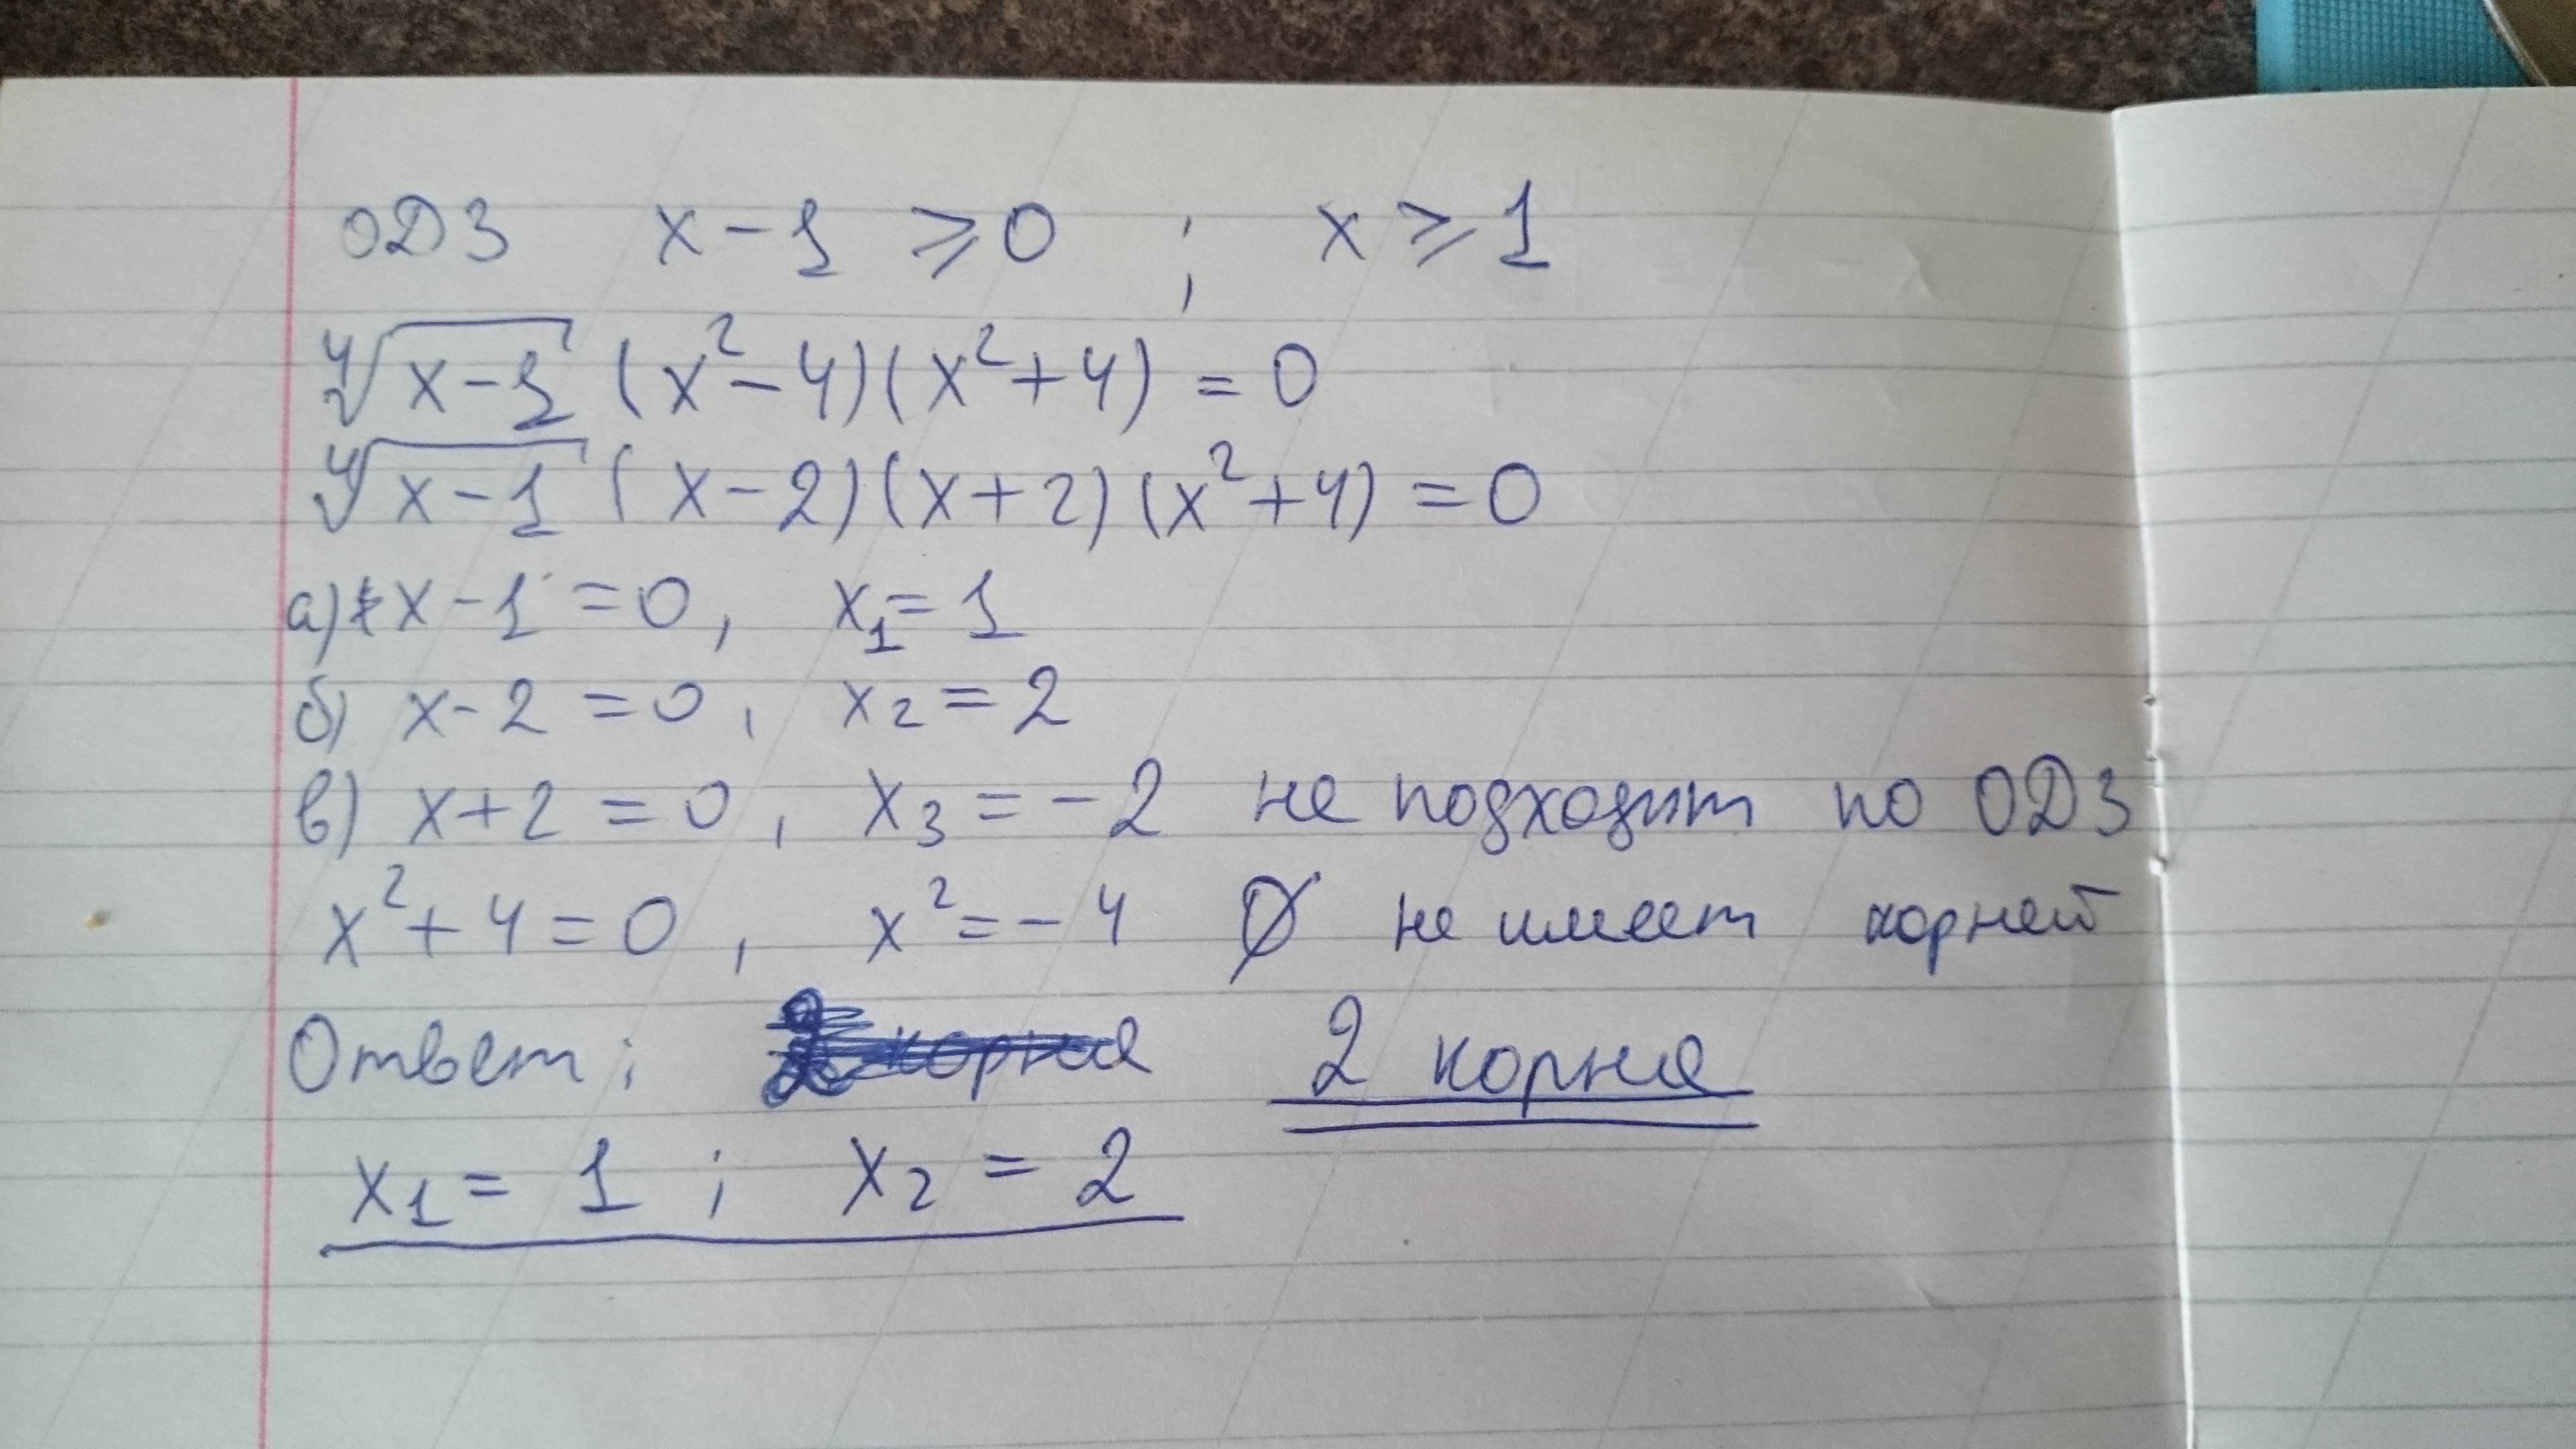 ОДЗ x-1 ⩾0 ; x⩾1
⁴√(x-1) (x²-4)(x²+4) = 0
⁴√(x-1) (x-2)(x+2)(x²+4) = 0
а) x-1 = 0, x₁ = 1
б) x-2 = 0, x₂ = 2
в) x+2 = 0, x₃ = -2 не подходит по ОДЗ
x²+4 = 0, x² = -4 ∅ не имеет корней
Ответ: 2 корня 2 корня
x₁ = 1 ; x₂ = 2